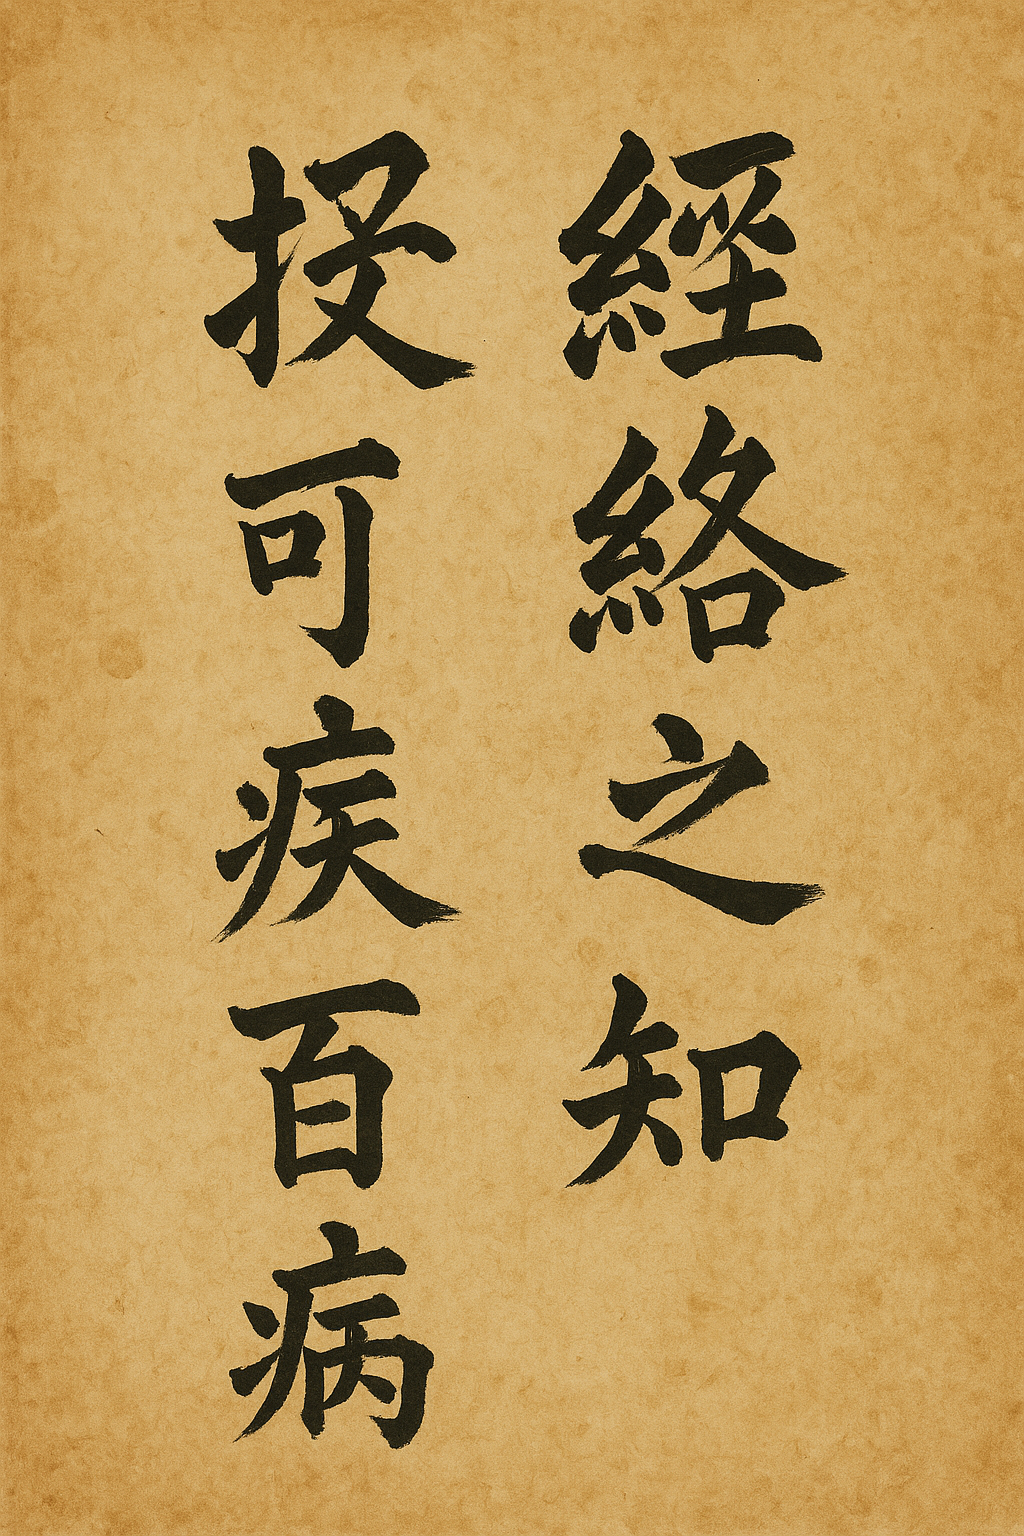 經絡之知
投可疾百病